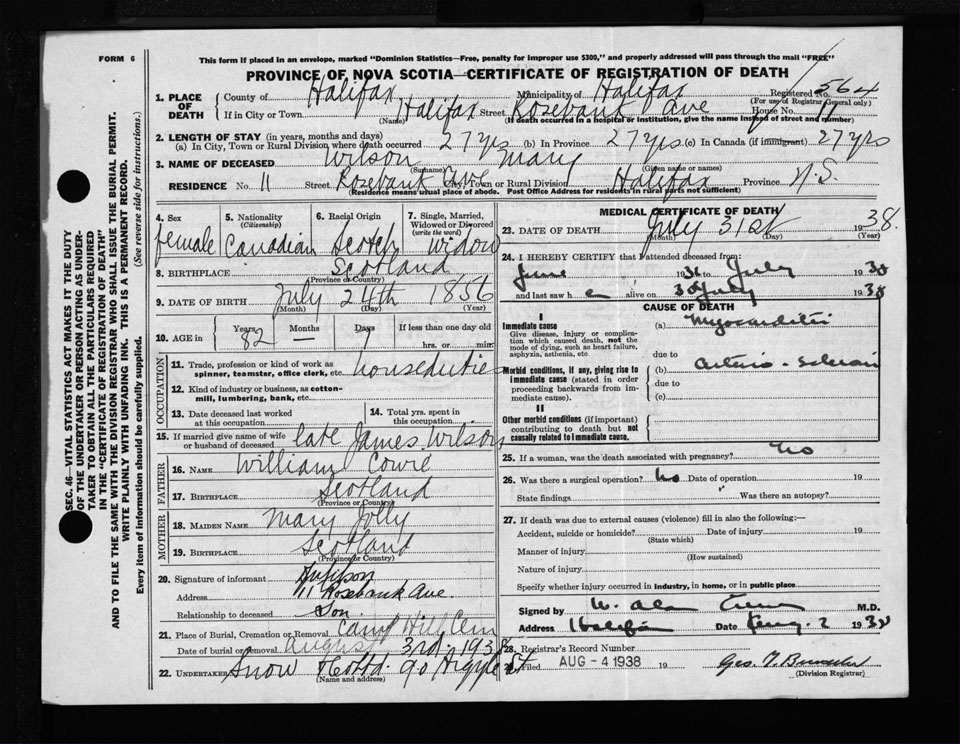 FORM 6
This form if placed in an envelope, marked "Dominion Statistics—Free, penalty for improper use $300," and properly addressed will pass through the mail "FREE"
PROVINCE OF NOVA SCOTIA—CERTIFICATE OF REGISTRATION OF DEATH
SEC. 46—VITAL STATISTICS ACT MAKES IT THE DUTY
OF THE UNDERTAKER OR PERSON ACTING AS UNDER-
TAKER TO OBTAIN ALL THE PARTICULARS REQUIRED
IN THE "CERTIFICATE OF REGISTRATION OF DEATH"
AND TO FILE THE SAME WITH THE DIVISION REGISTRAR WHO SHALL ISSUE THE BURIAL PERMIT.
WRITE PLAINLY WITH UNFADING INK. THIS IS A PERMANENT RECORD.
Every item of information should be carefully supplied. (See reverse side for instructions.)
1. PLACE OF DEATH
County of Halifax Municipality of Halifax Registered No. 564
(For use of Registrar General only)
If in City or Town Halifax Street Rosebank Ave House No. 11
(Name) (If death occurred in a hospital or institution, give the name instead of street and number)
2. LENGTH OF STAY (in years, months and days)
(a) In City, Town or Rural Division where death occurred 27 yrs (b) In Province 27 yrs. (c) In Canada (if immigrant) 27 yrs
3. NAME OF DECEASED Wilson Mary
(Surname) (Given name or names)
RESIDENCE No. 11 Street Rosebank Ave City, Town or Rural Division Halifax Province N.S.
(Residence means usual place of abode. Post Office Address for residents in rural parts not sufficient)
4. Sex female
5. Nationality (Citizenship) Canadian
6. Racial Origin Scotch
7. Single, Married, Widowed or Divorced (write the word) Widow
8. BIRTHPLACE Scotland
(Province or Country)
9. DATE OF BIRTH July 24th 1856
(Month) (Day) (Year)
10. AGE in Years 82 Months — Days 7 If less than one day old
hrs. or min.
OCCUPATION
11. Trade, profession or kind of work as spinner, teamster, office clerk, etc. houseduties
12. Kind of industry or business, as cotton-mill, lumbering, bank, etc.
13. Date deceased last worked at this occupation
14. Total yrs. spent in this occupation
15. If married give name of wife or husband of deceased late James Wilson
FATHER
16. NAME William Cowie
17. BIRTHPLACE Scotland
(Province or Country)
MOTHER
18. MAIDEN NAME Mary Jolly
19. BIRTHPLACE Scotland
(Province or Country)
20. Signature of informant
Address 11 Rosebank Ave.
Relationship to deceased Son
21. Place of Burial, Cremation or Removal Camp Hill Cem
Date of burial or removal August 3rd 1938
22. UNDERTAKER Snow 90 Argyle St
(Name and address)
MEDICAL CERTIFICATE OF DEATH
23. DATE OF DEATH July 31st 1938.
(Month) (Day) (Year)
24. I HEREBY CERTIFY that I attended deceased from:
June 1936 to July 1938
and last saw h er alive on 30 July 1938
CAUSE OF DEATH
I
Immediate cause
Give disease, injury or complication which caused death, not the mode of dying, such as heart failure, asphyxia, asthenia, etc
(a) Myocarditis
due to
Morbid conditions, if any, giving rise to immediate cause (stated in order proceeding backwards from immediate cause).
(b) Arterio-sclerosis
due to
(c)
II
Other morbid conditions (if important) contributing to death but not causally related to immediate cause.
25. If a woman, was the death associated with pregnancy? No
26. Was there a surgical operation? No Date of operation 19
State findings Was there an autopsy?
27. If death was due to external causes (violence) fill in also the following:—
Accident, suicide or homicide? Date of injury 19
(State which)
Manner of injury
(How sustained)
Nature of injury
Specify whether injury occurred in industry, in home, or in public place
Signed by W. Alan M.D.
Address Halifax Date Aug. 2 1938
28. Registrar's Record Number
Filed AUG -4 1938 19
Geo.
(Division Registrar)